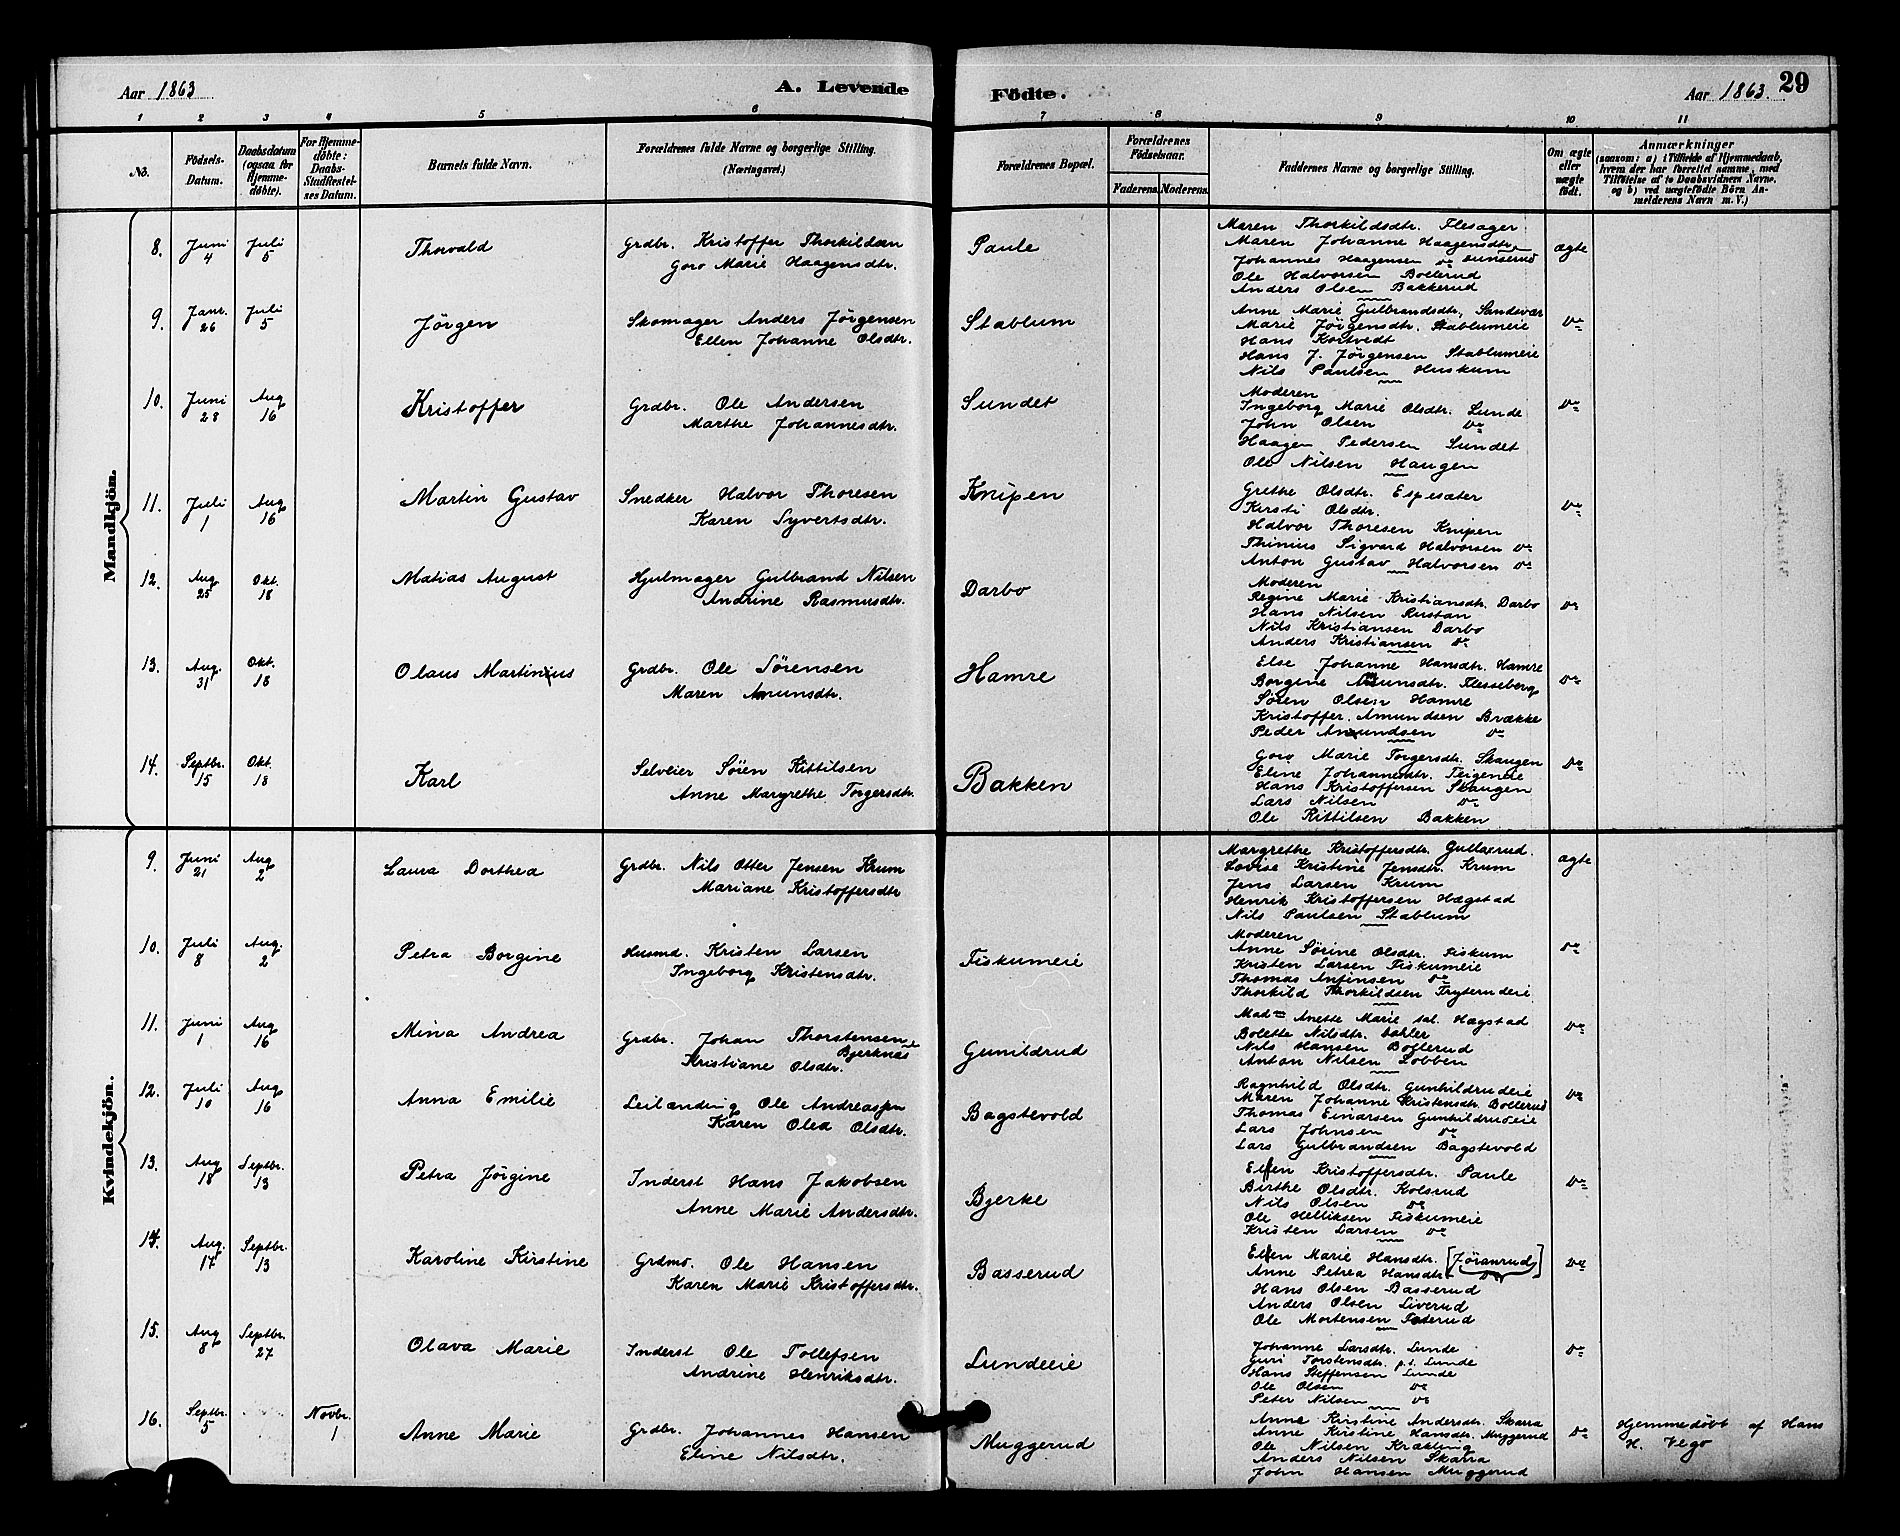 Aar 1863
A. Levende
Födte.
Aar 1863.
29
1 2 3 4 5 6 7 8 9 10 11
No.
Födsels-Datum.
Daabsdatum (ogsaa for Hjemme-döbte).
For Hjemme-döbte: Daabs-Stadfæstel-ses Datum.
Barnets fulde Navn.
Forældrenes fulde Navne og borgerlige Stilling. (Næringsvei.)
Forældrenes Bopæl.
Forældrenes Födselsaar.
Faderens. Moderens.
Faddernes Navne og borgerlige Stilling.
Om ægte eller uægte födt.
Anmærkninger
(saasom: a) i Tilfælde af Hjemmedaab,
hvem der har forrettet samme, med
Tilföielse af to Daabsvidners Navne,
og b) ved uægtefödte Börn An-
melderens Navn m. V.)
Mandkjön.
8. Juni 4 Juli 5 Thorvald
Grdbr. Kristoffer Thorkildsen
Goro Marie Haagensdtr.
Paule
Maren Thorkildsdtr. Flesager
Maren Johanne Haagensdtr.
Johannes Haagensen Do
Ole Halvorsen Bollerud
Anders Olsen Bakkerud
ægte
9. Janr. 26 Juli 5 Jörgen
Skomager Anders Jörgensen
Ellen Johanne Olsdtr.
Stablum
Anne Marie Gulbrandsdtr. Sandsvær
Marie Jörgensdtr. Stablumeie
Hans Kortvedt
Hans J. Jörgensen Stablumeie
Nils Paulsen Huskum
Do
10. Juni 28 Aug 16 Kristoffer
Grdbr. Ole Andersen
Marthe Johannesdtr.
Sundet
Moderen
Ingeborg Marie Olsdtr. Lunde
John Olsen Do
Haagen Pedersen Sundet
Ole Nilsen Haugen
Do
11. Juli 1 Aug 16 Martin Gustav
Snedker Halvor Thoresen
Karen Syvertsdtr.
Knipen
Grethe Olsdtr. Espesæter
Kirsti Olsdtr.
Halvor Thoresen Knipen
Thinius Sigvard Halvorsen Do
Anton Gustav Halvorsen Do
Do
12. Aug 25 Okt. 18 Matias August
Hjulmager Gulbrand Nilsen
Andrine Rasmusdtr.
Darbo
Moderen
Regine Marie Kristiansdtr. Darbo
Hans Nilsen Rustan
Nils Kristiansen Darbo
Anders Kristiansen Do
Do
13. Aug. 31 Okt. 18 Olaus Martinius
Grdbr. Ole Sörensen
Maren Amunsdtr.
Hamre
Else Johanne Hansdtr. Hamre
Borgine Amunsdtr. Flesseberg
Sören Olsen Hamre
Kristoffer Amundsen Brække
Peder Amundsen Do
Do
14. Septbr. 15 Okt. 18 Karl
Selveier Sören Kittilsen
Anne Margrethe Torgersdtr.
Bakken
Goro Marie Torgersdtr. Skaugen
Eline Johannesdtr. Teigeneie
Hans Kristoffersen Skaugen
Lars Nilsen Do
Ole Kittilsen Bakken
Do
Kvindekjön.
9. Juni 21 Aug 2 Laura Dorthea
Grdbr. Nils Otter Jensen Krum
Mariane Kristoffersdtr
Margrethe Kristoffersdtr. Gullaxrud.
Lovise Kristine Jensdtr. Krum
Jens Larsen Krum
Henrik Kristoffersen Hægstad
Nils Paulsen Stablum
ægte
10. Juli 8 Aug. 2 Petra Borgine
Husmd. Kristen Larsen
Ingeborg Kristensdtr.
Fiskumeie
Moderen
Anne Sörine Olsdtr. Fiskum
Kristen Larsen Fiskumeie
Thomas Anfinsen Do
Thorkild Thorkildsen Fryterudeie
Do
11. Juni 1 Aug 16 Mina Andrea
Grdbr. Johan Thorstensen
Bjerknæs
Kristiane Olsdtr.
Gunildrud
Mad= Anette Marie sal. Hægstad
Bolette Nilsdtr. Dahler
Nils Hansen Bollerud
Anton Nilsen Lobben
Do
12. Juli 10 Aug 16 Anna Emilie
Leilænding Ole Andreassen
Karen Olea Olsdtr.
Bagstevold
Ragnhild Olsdtr. Gunhildrudeie
Maren Johanne Kristensdtr. Bollerud
Thomas Einarsen Gunhildrudeie
Lars Johnsen Do
Lars Gulbrandsen Bagstevold
Do
13. Aug 18 Septbr. 13 Petra Jörgine
Inderst Hans Jakobsen
Anne Marie Andersdtr.
Bjerke
Ellen Kristoffersdtr. Paule
Birthe Olsdtr. Kolsrud
Nils Olsen Do
Ole Helliksen Fiskumeie
Kristen Larsen Do
Do
14. Aug. 17 Septbr. 13 Karoline Kirstine
Grdmd. Ole Hansen
Karen Marie Kristoffersdtr.
Basserud
Ellen Marie Hansdtr. [Jöranrud]
Anne Petrea Hansdtr. Do
Hans Olsen Basserud
Anders Olsen Liverud
Ole Mortensen
Do
15. Aug 8 Septbr. 27 Olava Marie
Inderst Ole Tollefsen
Andrine Henriksdtr.
Lundeeie
Johanne Larsdtr. Lunde
Guri Torstensdtr. p.t. Lunde
Hans Steffensen Lunde
Ole Olsen Do
Peter Nilsen Do
Do
16. Septbr. 5 Novbr. 1 Anne Marie
Grdbr. Johannes Hansen
Eline Nilsdtr.
Muggerud
Anne Kirstine Andersdtr. Skarra
Anne Kirstine Hansdtr. Muggerud
Ole Nilsen Krækling
Anders Nilsen Skarra
John Hansen Muggerud
Do
Hjemmedöbt af Hans
H. Vego